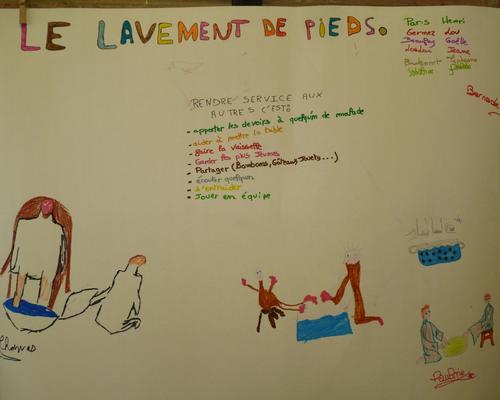 LE LAVEMENT DE PIEDS.
Paris Henri
Germez Lou
Beaufay Gaëlle
Jeane
RENDRE SERVICE AUX
AUTRES C'EST:
- apporter les devoirs à quelqu'un de malade
- aider à mettre la table
- faire la vaisselle
- Garder les plus jeunes
- Partager (Bonbons, Gâteaux, Jouets...)
- écouter quelqu'un
- s'entraider
- Jouer en équipe
Pauline